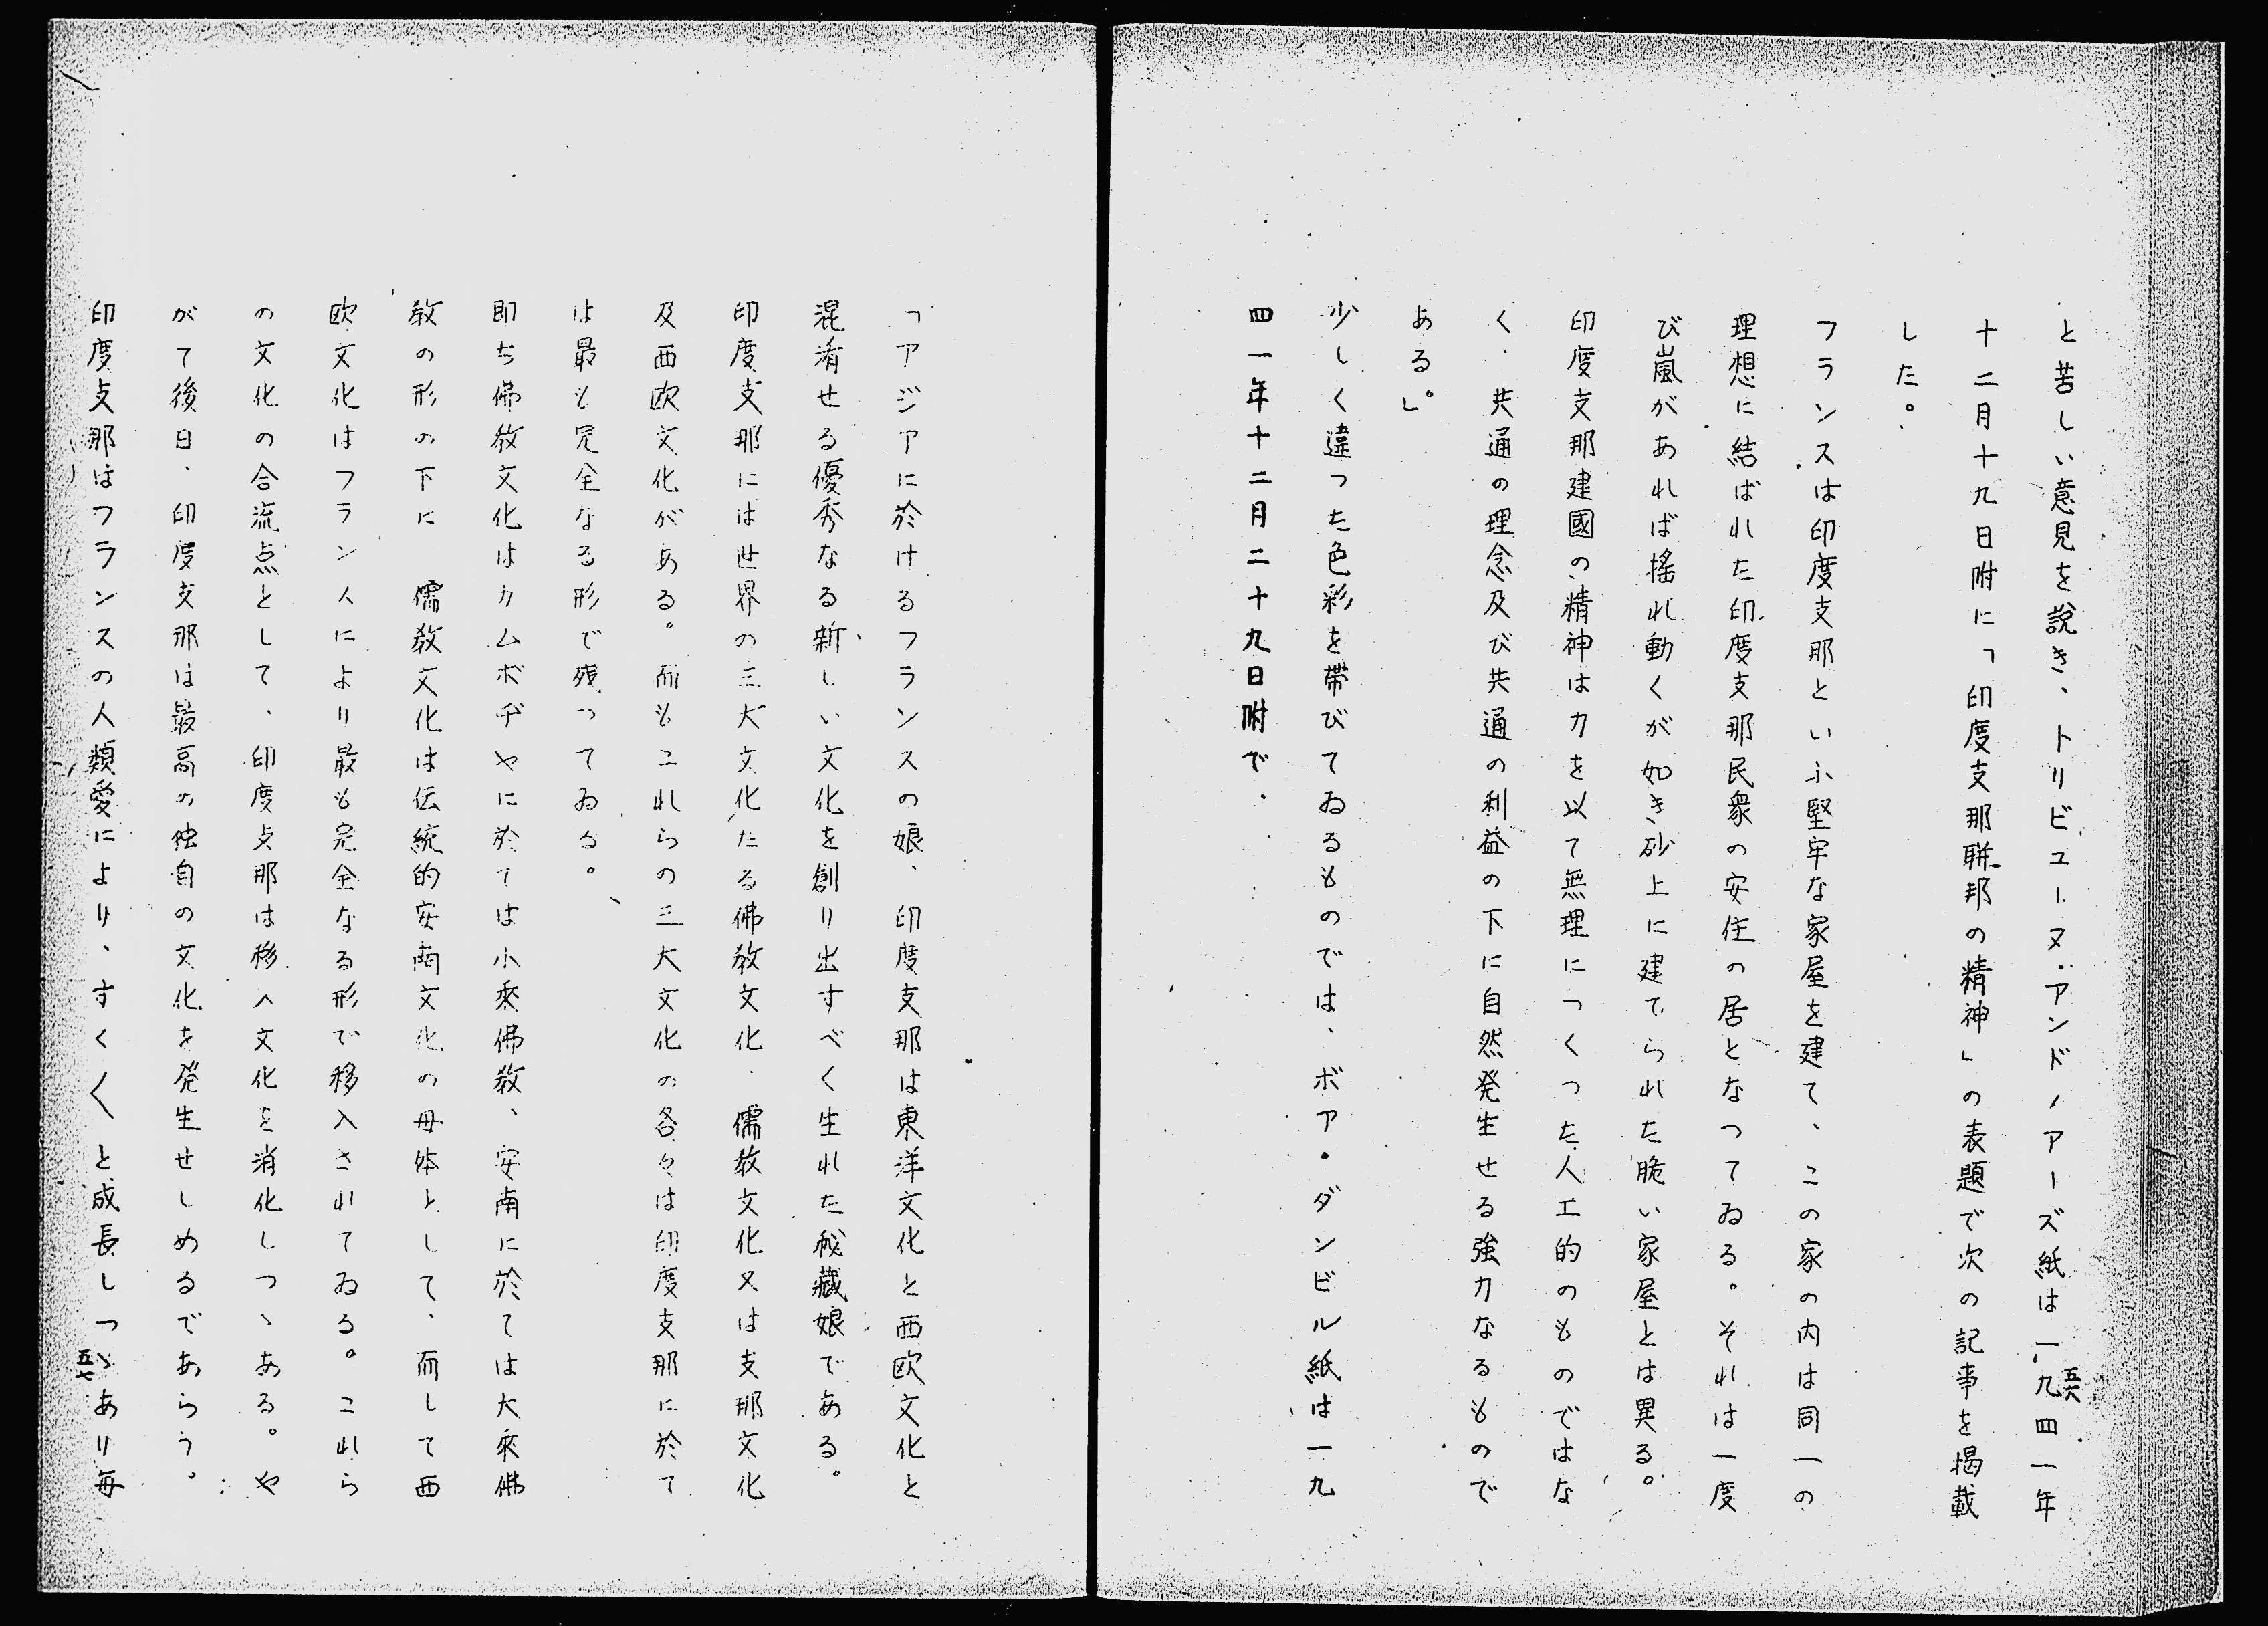 と苦しい意見を説き、トリビユーヌ・アンドノアーズ紙は一九四一年
十二月十九日附に「印度支那聯邦の精神」の表題で次の記事を掲載
した。
フランスは印度支那といふ堅牢な家屋を建て、この家の内は同一の
理想に結ばれた印度支那民衆の安住の居となつてゐる。それは一度
び嵐があれば搖れ動くが如き砂上に建てられた脆い家屋とは異る。
印度支那建國の精神は力を以て無理につくつた人工的のものではな
く、共通の理念及び共通の利益の下に自然発生せる強力なるもので
ある。」
少しく違つた色彩を帯びてゐるものでは、ボア・ダンビル紙は一九
四一年十二月二十九日附で、
五六
「アジアに於けるフランスの娘、印度支那は東洋文化と西欧文化と
混淆せる優秀なる新しい文化を創り出すべく生れた秘蔵娘である。
印度支那には世界の三大文化たる佛教文化、儒教文化又は支那文化
及西欧文化がある。而もこれらの三大文化の各々は印度支那に於て
は最も完全なる形で残つてゐる。
即ち佛教文化はカムボヂヤに於ては小乘佛教、安南に於ては大乘佛
教の形の下に 儒教文化は伝統的安南文化の母体として、而して西
欧文化はフラン人により最も完全なる形で移入されてゐる。これら
の文化の合流点として、印度支那は移入文化を消化しつゝある。や
がて後日、印度支那は最高の独自の文化を発生せしめるであらう。
印度支那はフランスの人類愛により、すく〱と成長しつゝあり毎
五七